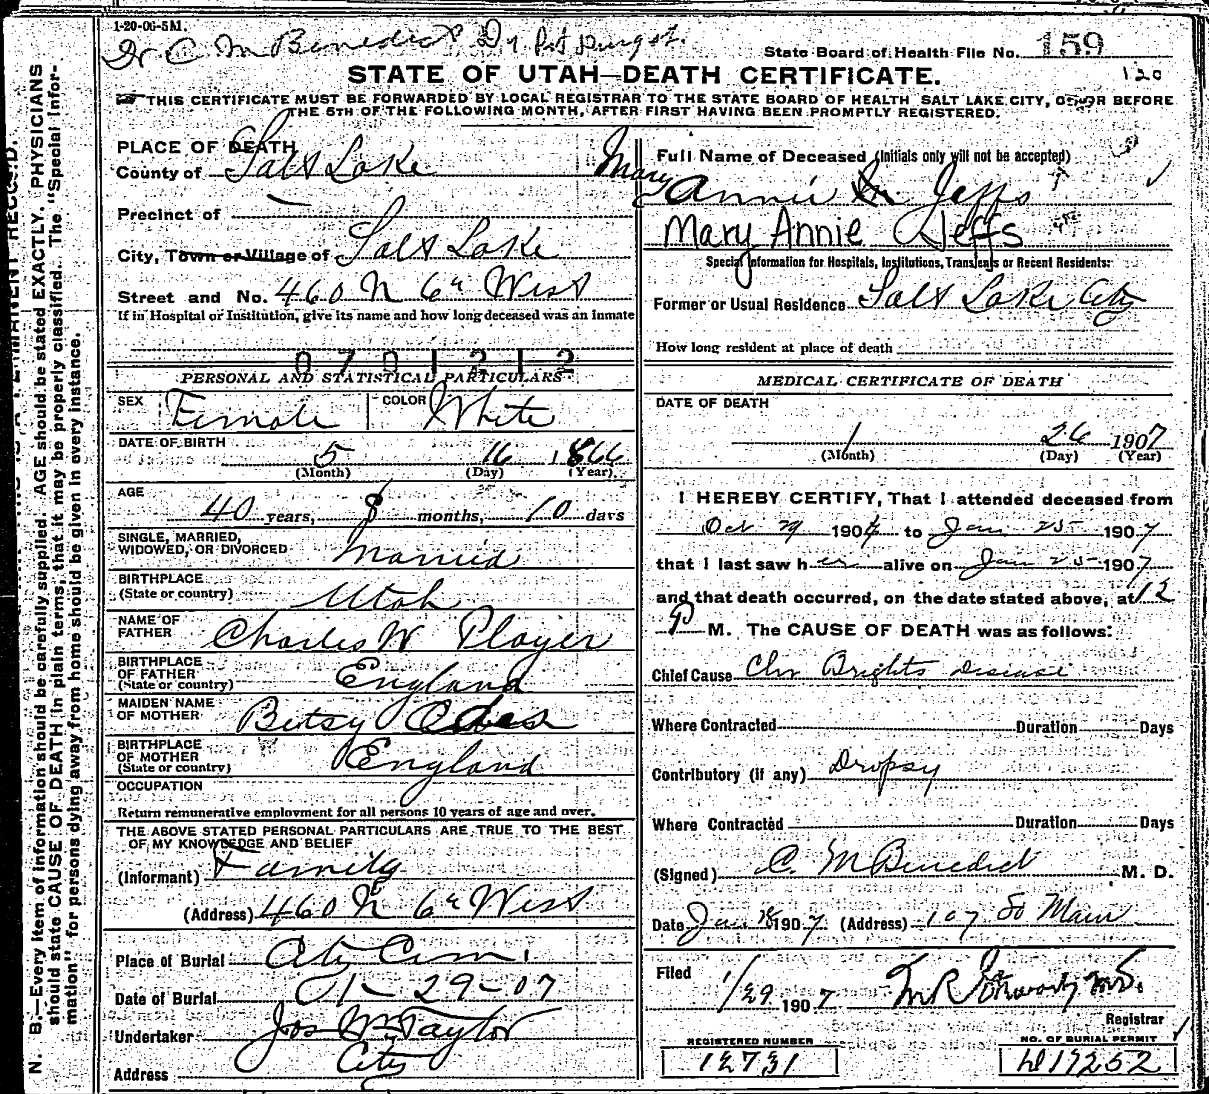 1-20-06-5M.
Dr C M Benedict
State Board of Health File No. 159
120
STATE OF UTAH—DEATH CERTIFICATE.
THIS CERTIFICATE MUST BE FORWARDED BY LOCAL REGISTRAR TO THE STATE BOARD OF HEALTH SALT LAKE CITY, ON OR BEFORE
THE 5TH OF THE FOLLOWING MONTH, AFTER FIRST HAVING BEEN PROMPTLY REGISTERED.
PLACE OF DEATH
County of Salt Lake
Precinct of
City, Town or Village of Salt Lake
Street and No. 460 N 6th West
If in Hospital or Institution, give its name and how long deceased was an inmate
0701212
PERSONAL AND STATISTICAL PARTICULARS
SEX Female COLOR White
DATE OF BIRTH 5 16 1866
(Month) (Day) (Year)
AGE 40 years, 8 months, 10 days
SINGLE, MARRIED,
WIDOWED, OR DIVORCED Married
BIRTHPLACE
(State or country) Utah
NAME OF
FATHER Charles W Player
BIRTHPLACE
OF FATHER
(State or country) England
MAIDEN NAME
OF MOTHER Betsy
BIRTHPLACE
OF MOTHER
(State or country) England
OCCUPATION
Return remunerative employment for all persons 10 years of age and over.
THE ABOVE STATED PERSONAL PARTICULARS ARE TRUE TO THE BEST
OF MY KNOWLEDGE AND BELIEF
(Informant) Family
(Address) 460 N 6th West
Place of Burial City Cem.
Date of Burial 1-29-07
Undertaker Jos Wm Taylor
Address City
Full Name of Deceased (Initials only will not be accepted)
Mary Annie Jeffs
Mary Annie Jeffs
Special Information for Hospitals, Institutions, Transients or Recent Residents:
Former or Usual Residence Salt Lake City
How long resident at place of death
MEDICAL CERTIFICATE OF DEATH
DATE OF DEATH
1 26 1907
(Month) (Day) (Year)
I HEREBY CERTIFY, That I attended deceased from
Oct 29 190 to Jan 25 1907
that I last saw her alive on Jan 25 1907
and that death occurred, on the date stated above, at 12
P M. The CAUSE OF DEATH was as follows:
Chief Cause Chr Brights disease
Where Contracted Duration Days
Contributory (if any) Dropsy
Where Contracted Duration Days
(Signed) C. M Benedict M. D.
Date Jan 28 1907 (Address) 107 So Main
Filed 1/29 1907
Registrar
REGISTERED NUMBER
12731
NO. OF BURIAL PERMIT
17252
N. B.—Every item of information should be carefully supplied. AGE should be stated EXACTLY. PHYSICIANS
should state CAUSE OF DEATH in plain terms, that it may be properly classified. The "Special Infor-
mation" for persons dying away from home should be given in every instance.